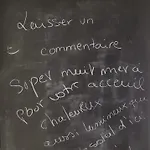 Laisser un
commentaire
Super nuit merci
pour votre acceuil
chaleureux
aussi